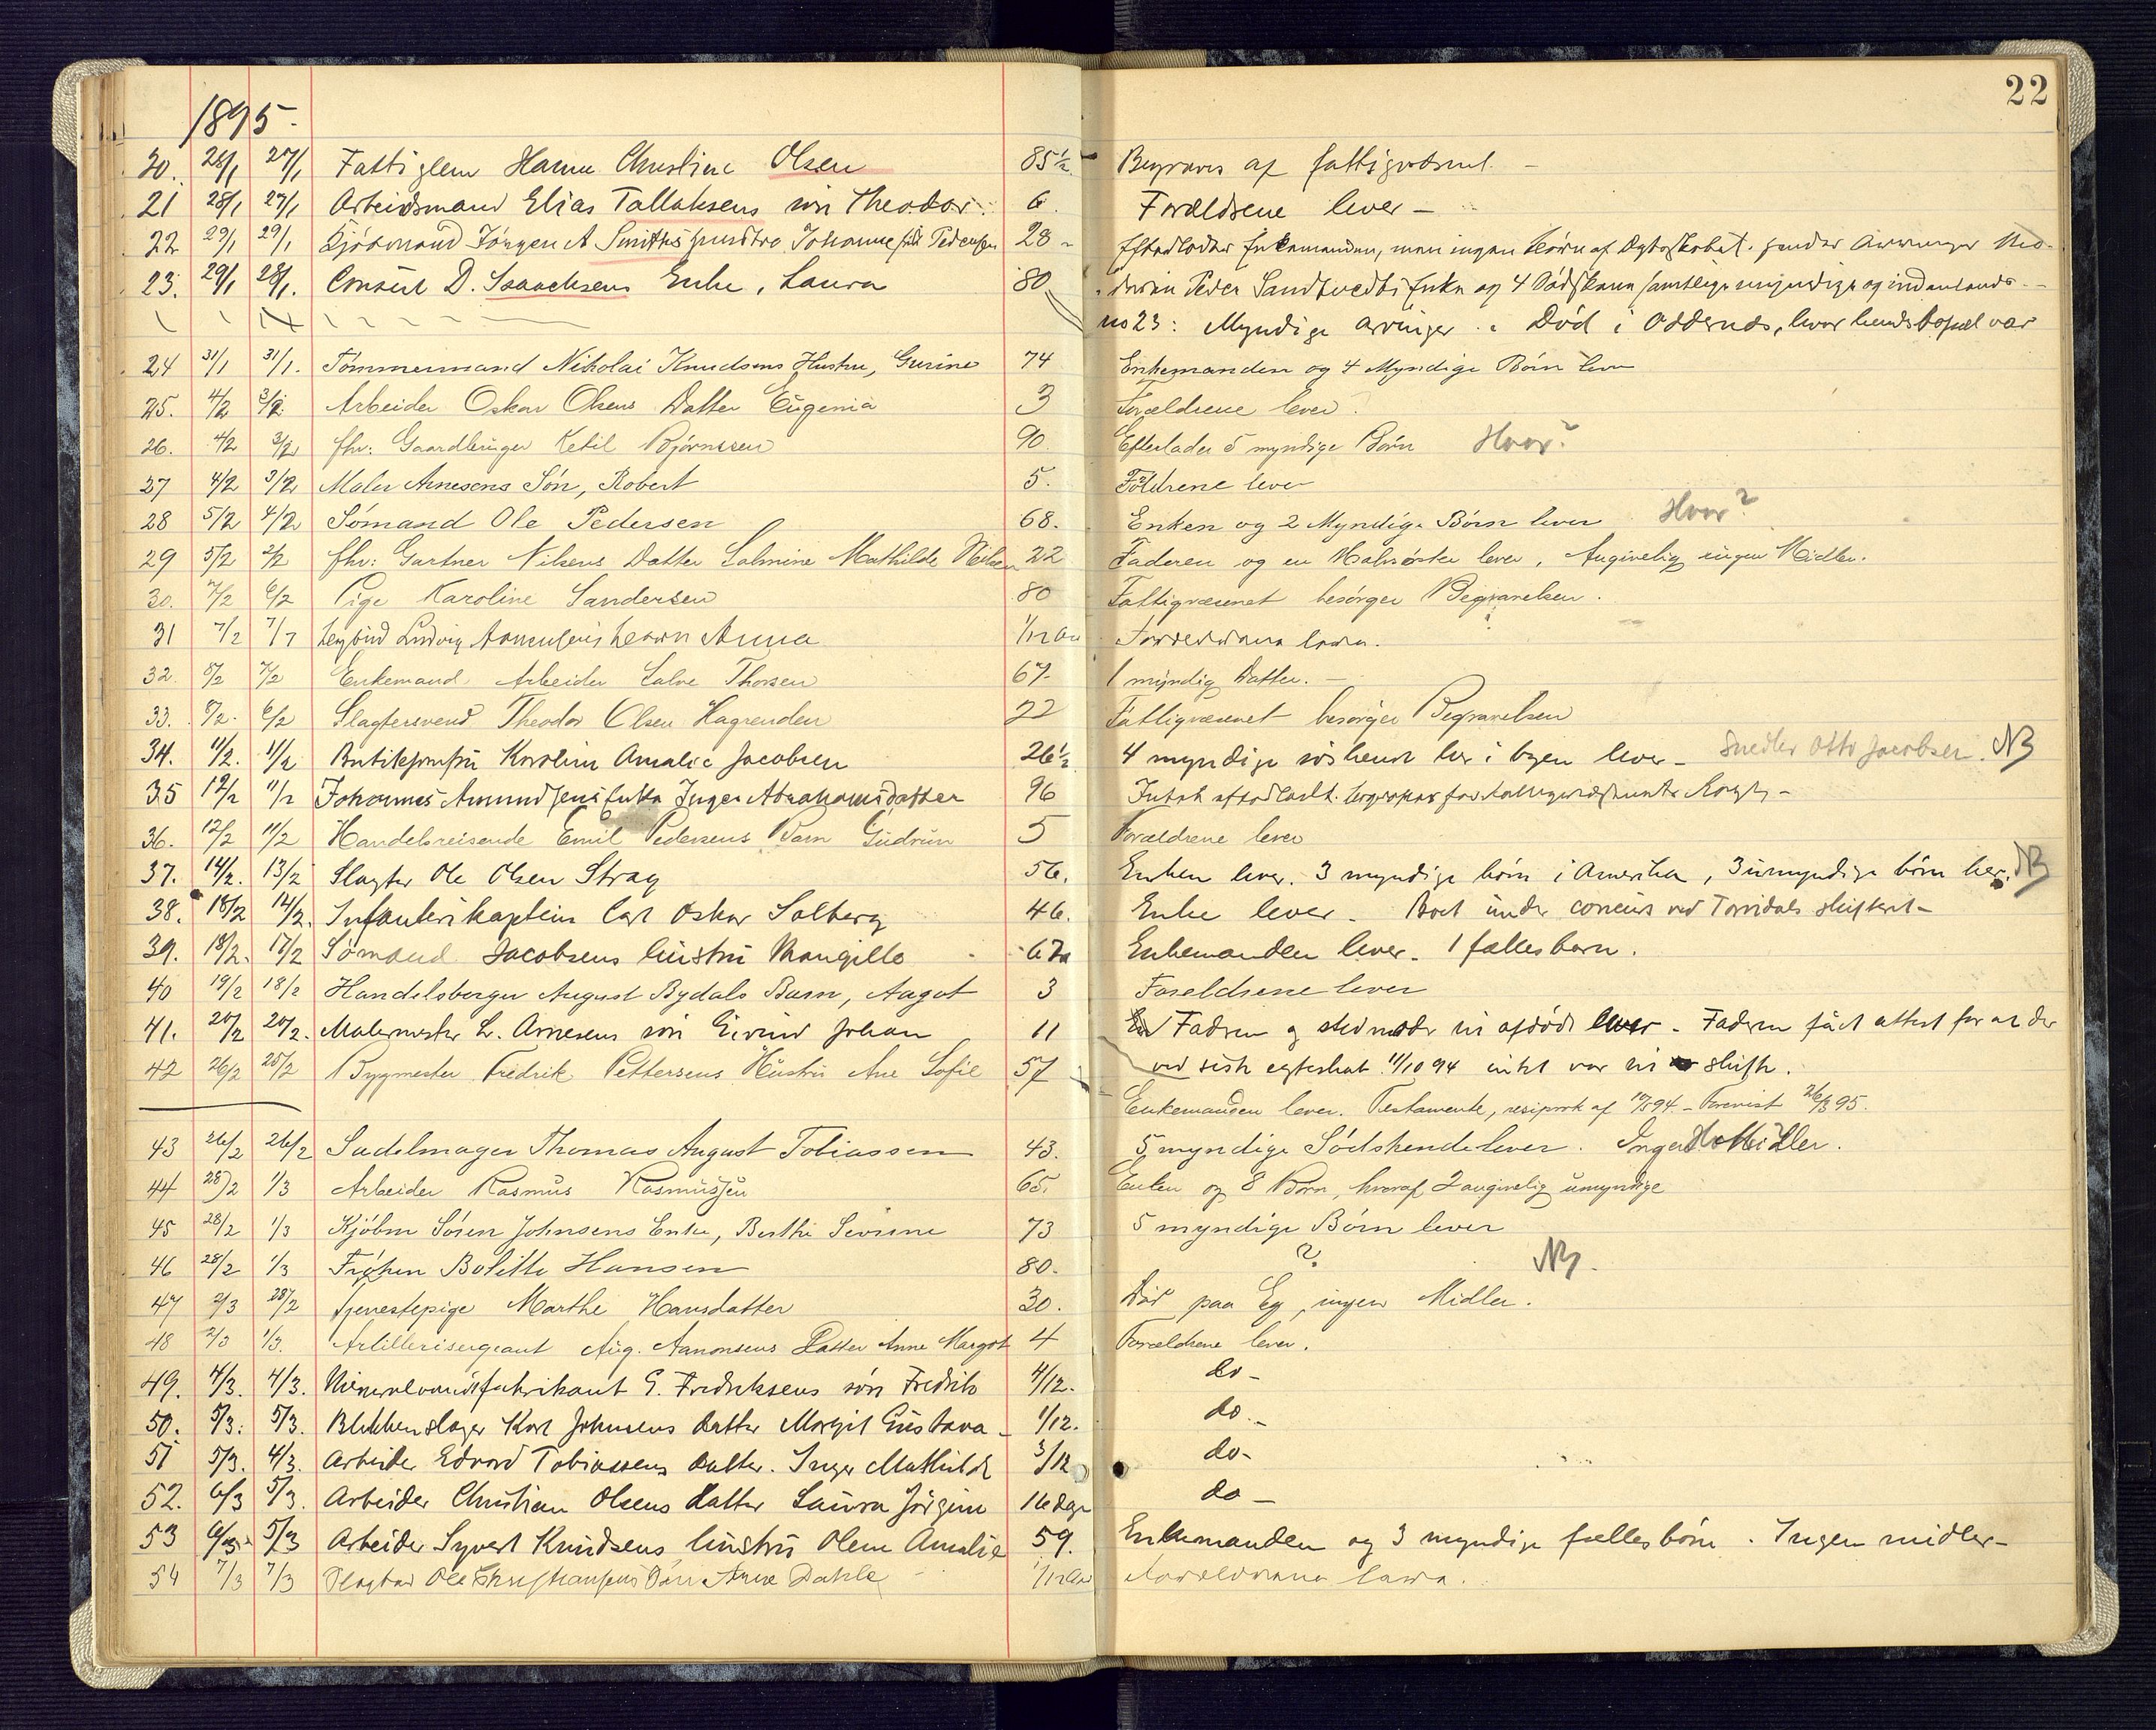 22
1895.
20. 28/1 27/1 Fattiglem Hanne Christine Olsen 85½ Begraves af fattigvæsenet. -
21 28/1 27/1 Arbeidsmand Elias Tallaksens søn Theodor. 6. Forældrene lever -
22 29/1 29/1 Kjøbmand Jørgen A Smiths hustro Johanne født Pedersen 28 - Efterlader Enkemanden, men ingen børn af Ægteskabet. Hendes Arvinger Mo-
23. 29/1 28/1. Consul D. Isaachsens Enke, Laura 80 deren Peder Sandtvedts Enke og 4 Sødskene samtlige myndige og indenlands. -
no 23: Myndige arvinger. Død i Oddernes, hvor hendes bopæl var
24 31/1 31/1. Tømmermand Nikolai Knudsens Hustru, Gurine 74 Enkemanden og 4 Myndige Børn lever
25. 4/2 3/2. Arbeider Oskar Olsens Datter Eugenia 3 Forældrene lever.
26. 4/2 3/2 fhv: Gaardbruger Ketil Bjørnssen 90 Efterlader 5 myndige Børn Hvor?
27 4/2 3/2 Maler Arnesens Søn, Robert 5. Foldrene lever
28 5/2 4/2 Sømand Ole Pedersen 68. Enken og 2 Myndige Børn lever Hvor?
29 5/2 2/2 fhv: Gartner Nilsens Datter Salmine Mathilde Nilsen 22 Faderen og en Halvsøster lever, Angivelig ingen Midler.
30. 7/2 6/2 Pige Karoline Sandersen 80 Fattigvæsenet besørger Begravelsen.
31 7/2 7/7 Ludvig barn Anna 1/12 Forældrene lever.
32. 8/2 7/2 Enkemand Arbeider Salve Thorsen 67. 1 myndig Datter. -
33. 8/2. 6/2 Slagtersvend Theodor Olsen Hagrenden 22 Fattigvæsenet besørger Begravelsen
34. 11/2. 11/2 Butikjomfru Karoline Amalie Jacobsen 26½ 4 myndige søskende her i byen lever - Snedker Otto Jacobsen. NB
35 12/2 11/2 Johannes Amundsens Enke Inger Abrahamsdatter 96 Intet efterladt.
36. 12/2 11/2 Handelsreisende Emil Pedersens Barn Gudrun 5 Forældrene lever
37. 14/2. 13/2 Slagter Ole Olsen Stray 56. Enken lever. 3 myndige børn i Amerika, 3 umyndige børn her. NB
38. 18/2 14/2. Infanterikaptein Carl Oskar Solberg 46. Enke lever - Boet under concurs ved Torridals skifteret -
39. 18/2. 17/2 Sømand Jacobsens hustru Mangille 67 Enkemanden lever. 1 fællesbarn.
40 19/2 18/2 Handelsborger August Bydals Barn, Aagot 3 Foreldrene lever
41. 20/2 20/2. Malermester L. Arnesens søn Eivind Johan 11 Fadren og stedmoder til afdøde lever - Fadren fået attest for at der
ved sidste egteskab 11/10 94 intet var til skifte.
42 26/2 25/2 Bygmester Fredrik Pettersens Hustru Ane Sofie 57 Enkemanden lever. Testamente, resiprok af 10/5 94 - Forevist 26/3 95.
43 26/2 26/2 Sadelmager Thomas August Tobiassen 43. 5 myndige Sødskende lever. Ingen Midler.
44 28/2 1/3 Arbeider Rasmus Rasmussen 65. Enken og 8 Børn, hvoraf 2 angivelig umyndige
45 28/2 1/3 Kjøbm Søren Johnsens Enke, Berthe Severine 73 5 myndige Børn lever
46 28/2 1/3 Frøken Bolette Hansen 80. ? NB.
47 2/3 28/2 Tjenestepige Marthe Hansdatter 30. Død paa Eg, ingen Midler.
48 2/3 1/3. Artillerisergeant Aug. Aanonsens Datter Anne Margot 4 Forældrene lever.
49. 4/3. 4/3. Mineralvandsfabrikant G. Fredriksens søn Fredrik 4/12. do -
50. 5/3. 5/3. Blikkenslager Karl Johnsens datter Margit Gustava - 1/12. do. -
51 5/3. 4/3. Arbeider Edvard Tobiassens datter. Inger Mathilde 3/12 do -
52. 6/3 5/3. Arbeider Christian Olsens datter Laura Jørgine 16 dage do -
53 6/3. 5/3 Arbeider Syvert Knudsens hustru Olene Amalie 59. Enkemanden og 3 myndige fællesbørn. Ingen midler -
54 7/3 7/3 Slagter Ole Christiansens Børn Anne Dahle 1/12 Forældrene lever.